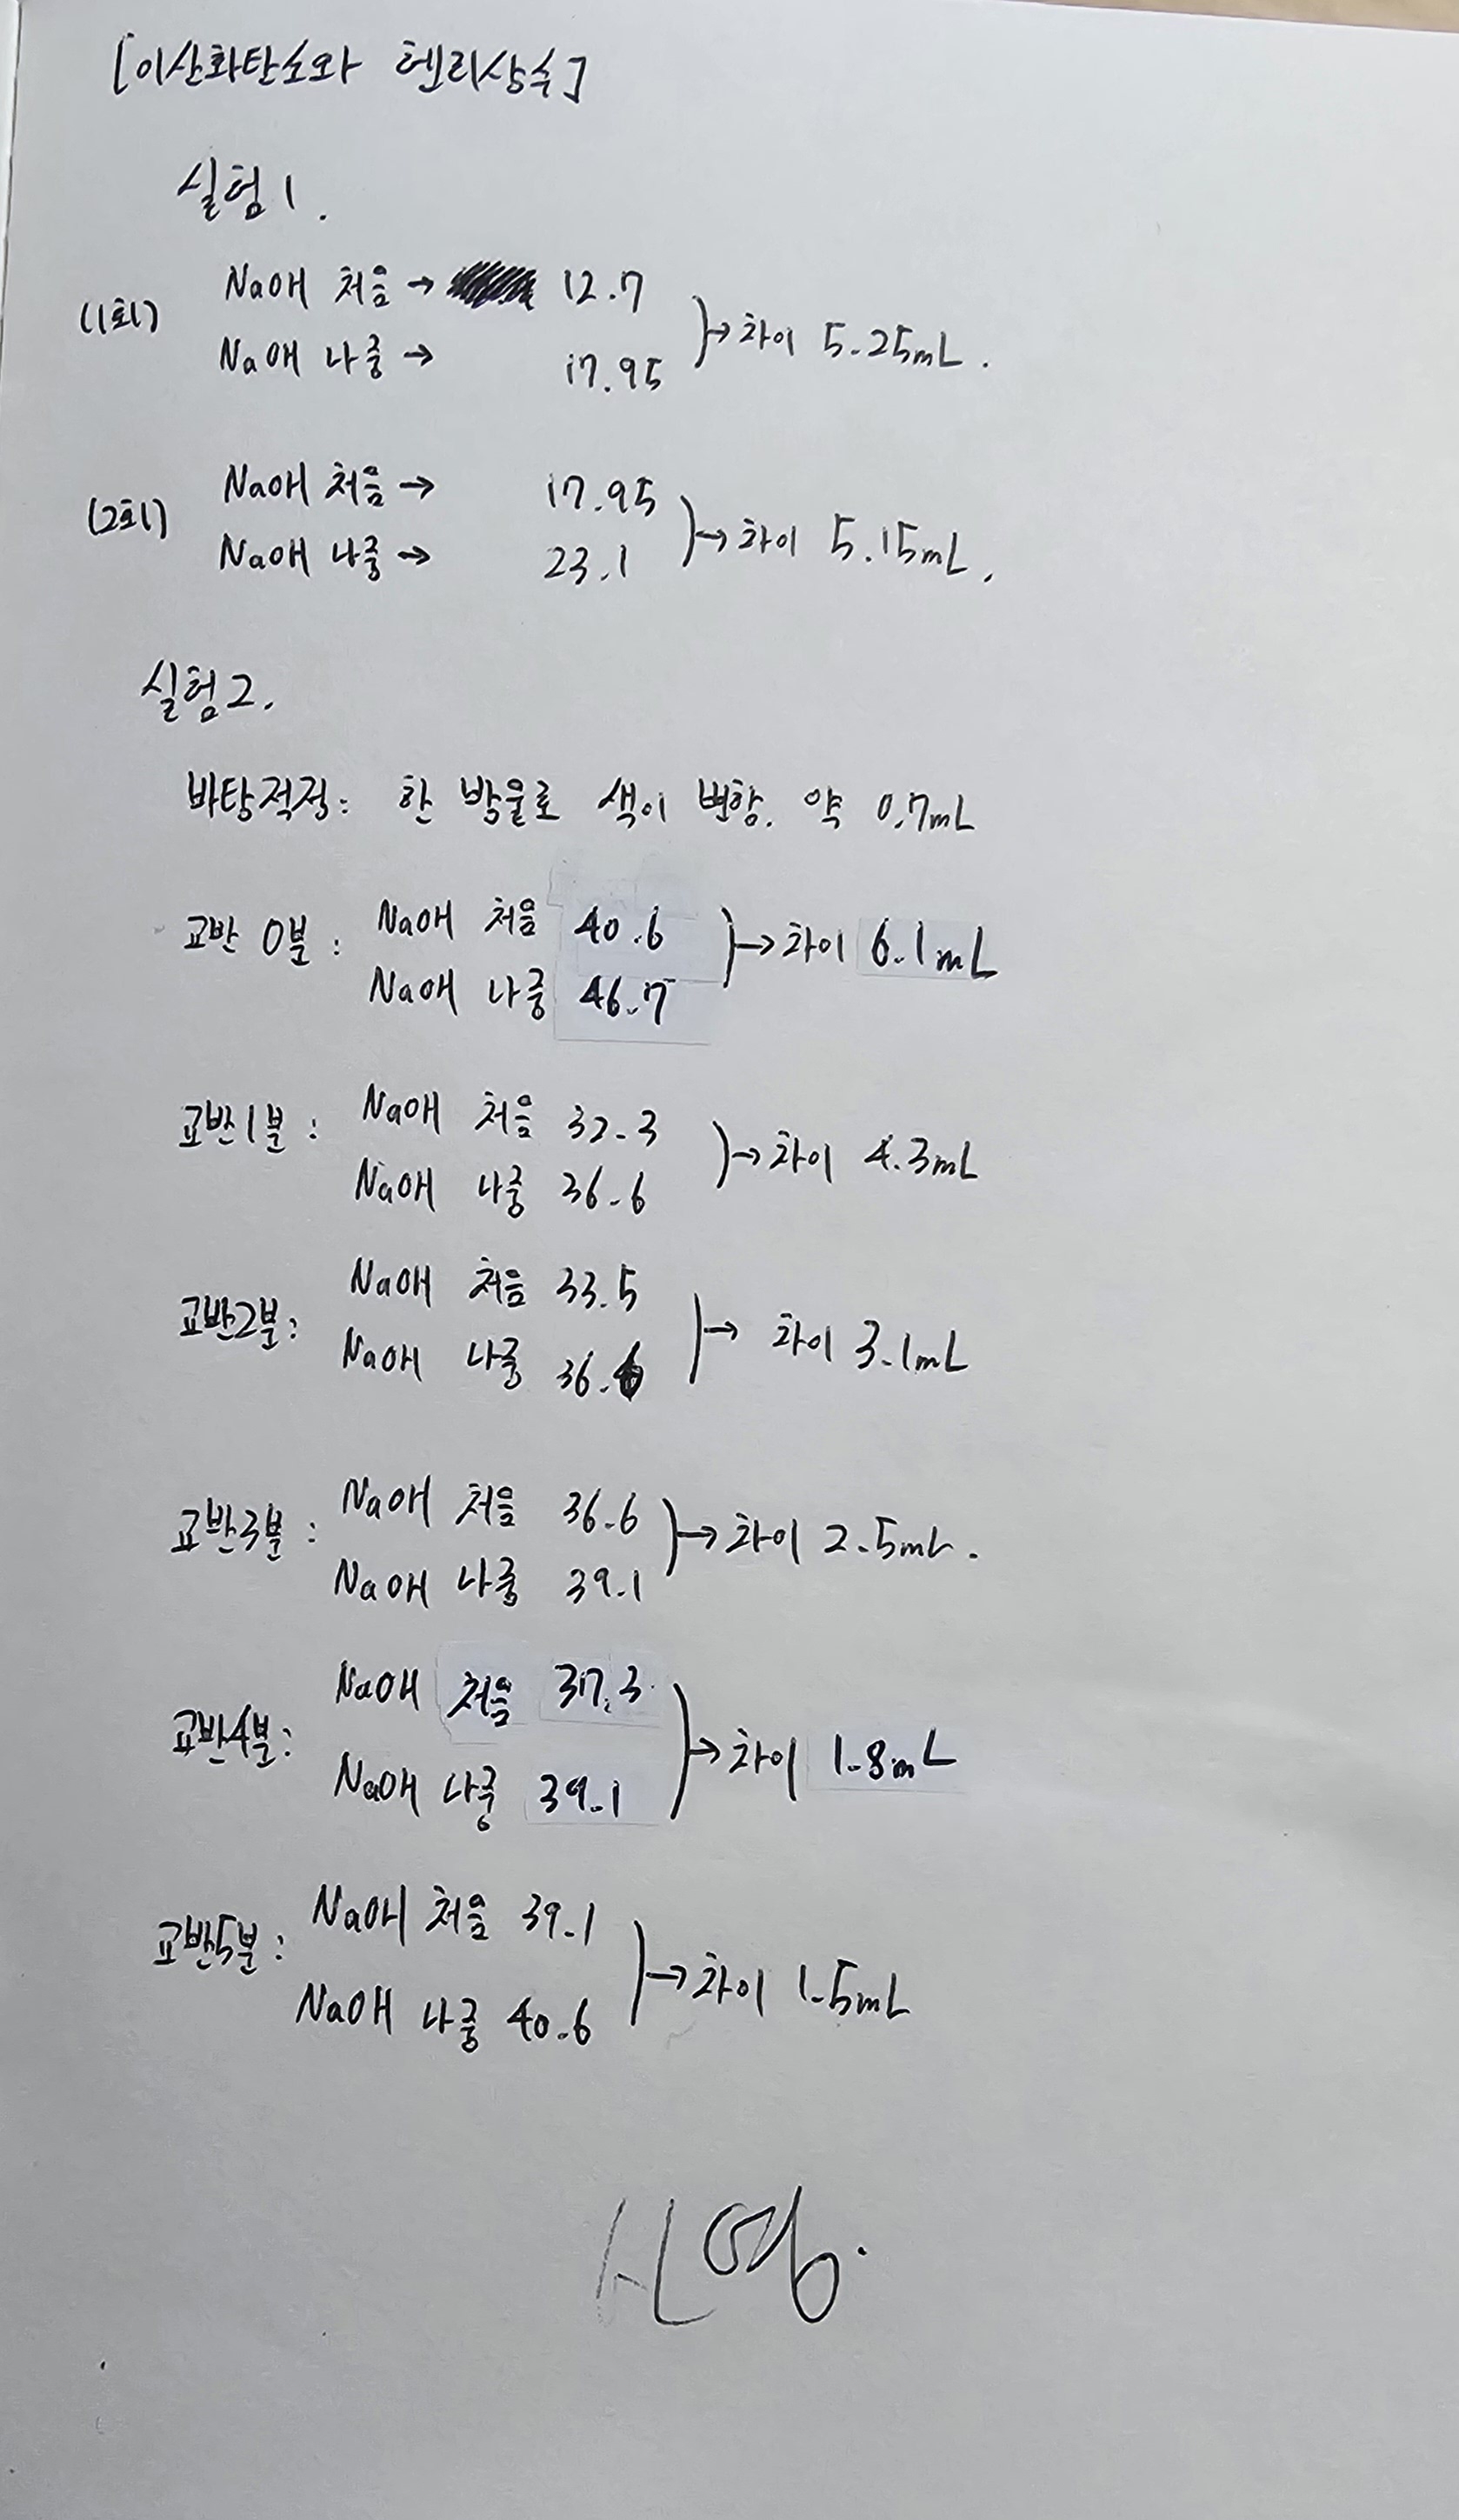 [이산화탄소와 헨리상수]
실험 1.
(1회)
NaOH 처음 → 12.7
NaOH 나중 → 17.95
→ 차이 5.25mL.
(2회)
NaOH 처음 → 17.95
NaOH 나중 → 23.1
→ 차이 5.15mL.
실험 2.
바탕적정: 한 방울로 색이 변함. 약 0.7mL
교반 0분:
NaOH 처음 40.6
NaOH 나중 46.7
→ 차이 6.1mL
교반 1분:
NaOH 처음 32.3
NaOH 나중 36.6
→ 차이 4.3mL
교반2분:
NaOH 처음 33.5
NaOH 나중 36.6
→ 차이 3.1mL
교반3분:
NaOH 처음 36.6
NaOH 나중 39.1
→ 차이 2.5mL.
교반4분:
NaOH 처음 37.3
NaOH 나중 39.1
→ 차이 1.8mL
교반5분:
NaOH 처음 39.1
NaOH 나중 40.6
→ 차이 1.5mL